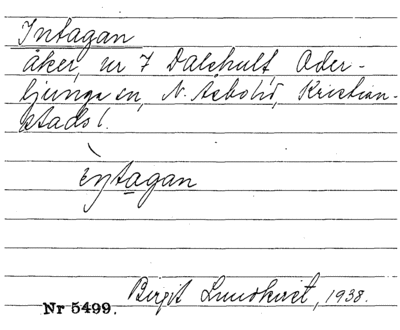 Intagan
åker, nr 7 Dalshult, Oder-
ljunga sn, N. Åsbo hd, Kristian-
stads l.
ìntagan
Birgit Lundkvist, 1938.
Nr 5499.